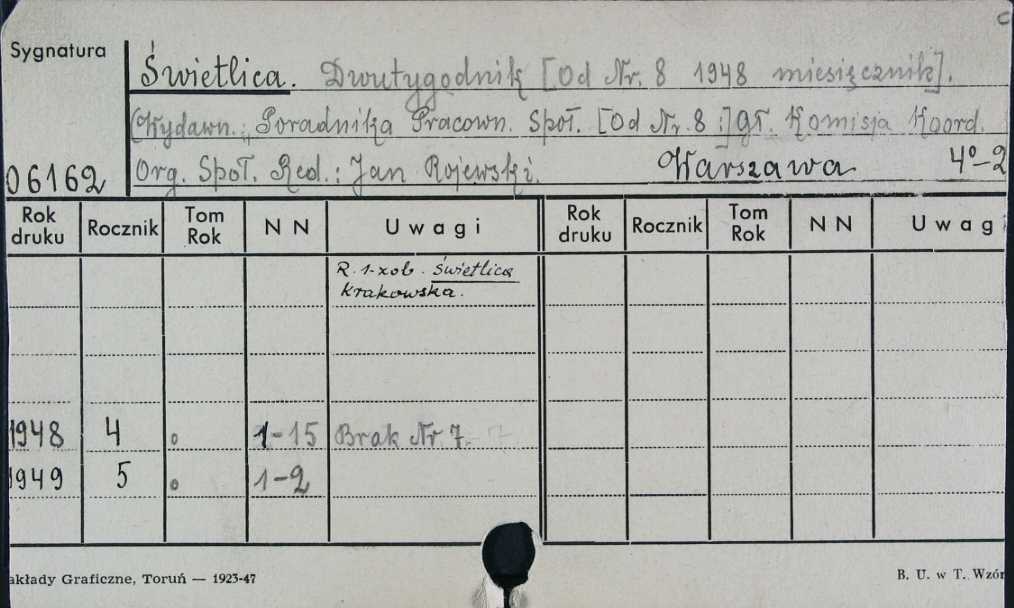 C
Sygnatura
Świetlica. Dwutygodnik [Od Nr. 8 1948 miesięcznik].
(Wydawn.: Poradnika Pracown. Społ. [Od Nr. 8:] Gł. Komisja Koord.
06162 Org. Społ. Red.: Jan Rojewski. Warszawa 4°-2
Rok druku Rocznik Tom Rok N N Uwagi Rok druku Rocznik Tom Rok N N Uwagi
R. 1- zob. Świetlica
Krakowska.
1948 4 ° 1-15 Brak Nr 7.
1949 5 ° 1-2
akłady Graficzne, Toruń — 1923-47 B. U. w T. Wzór